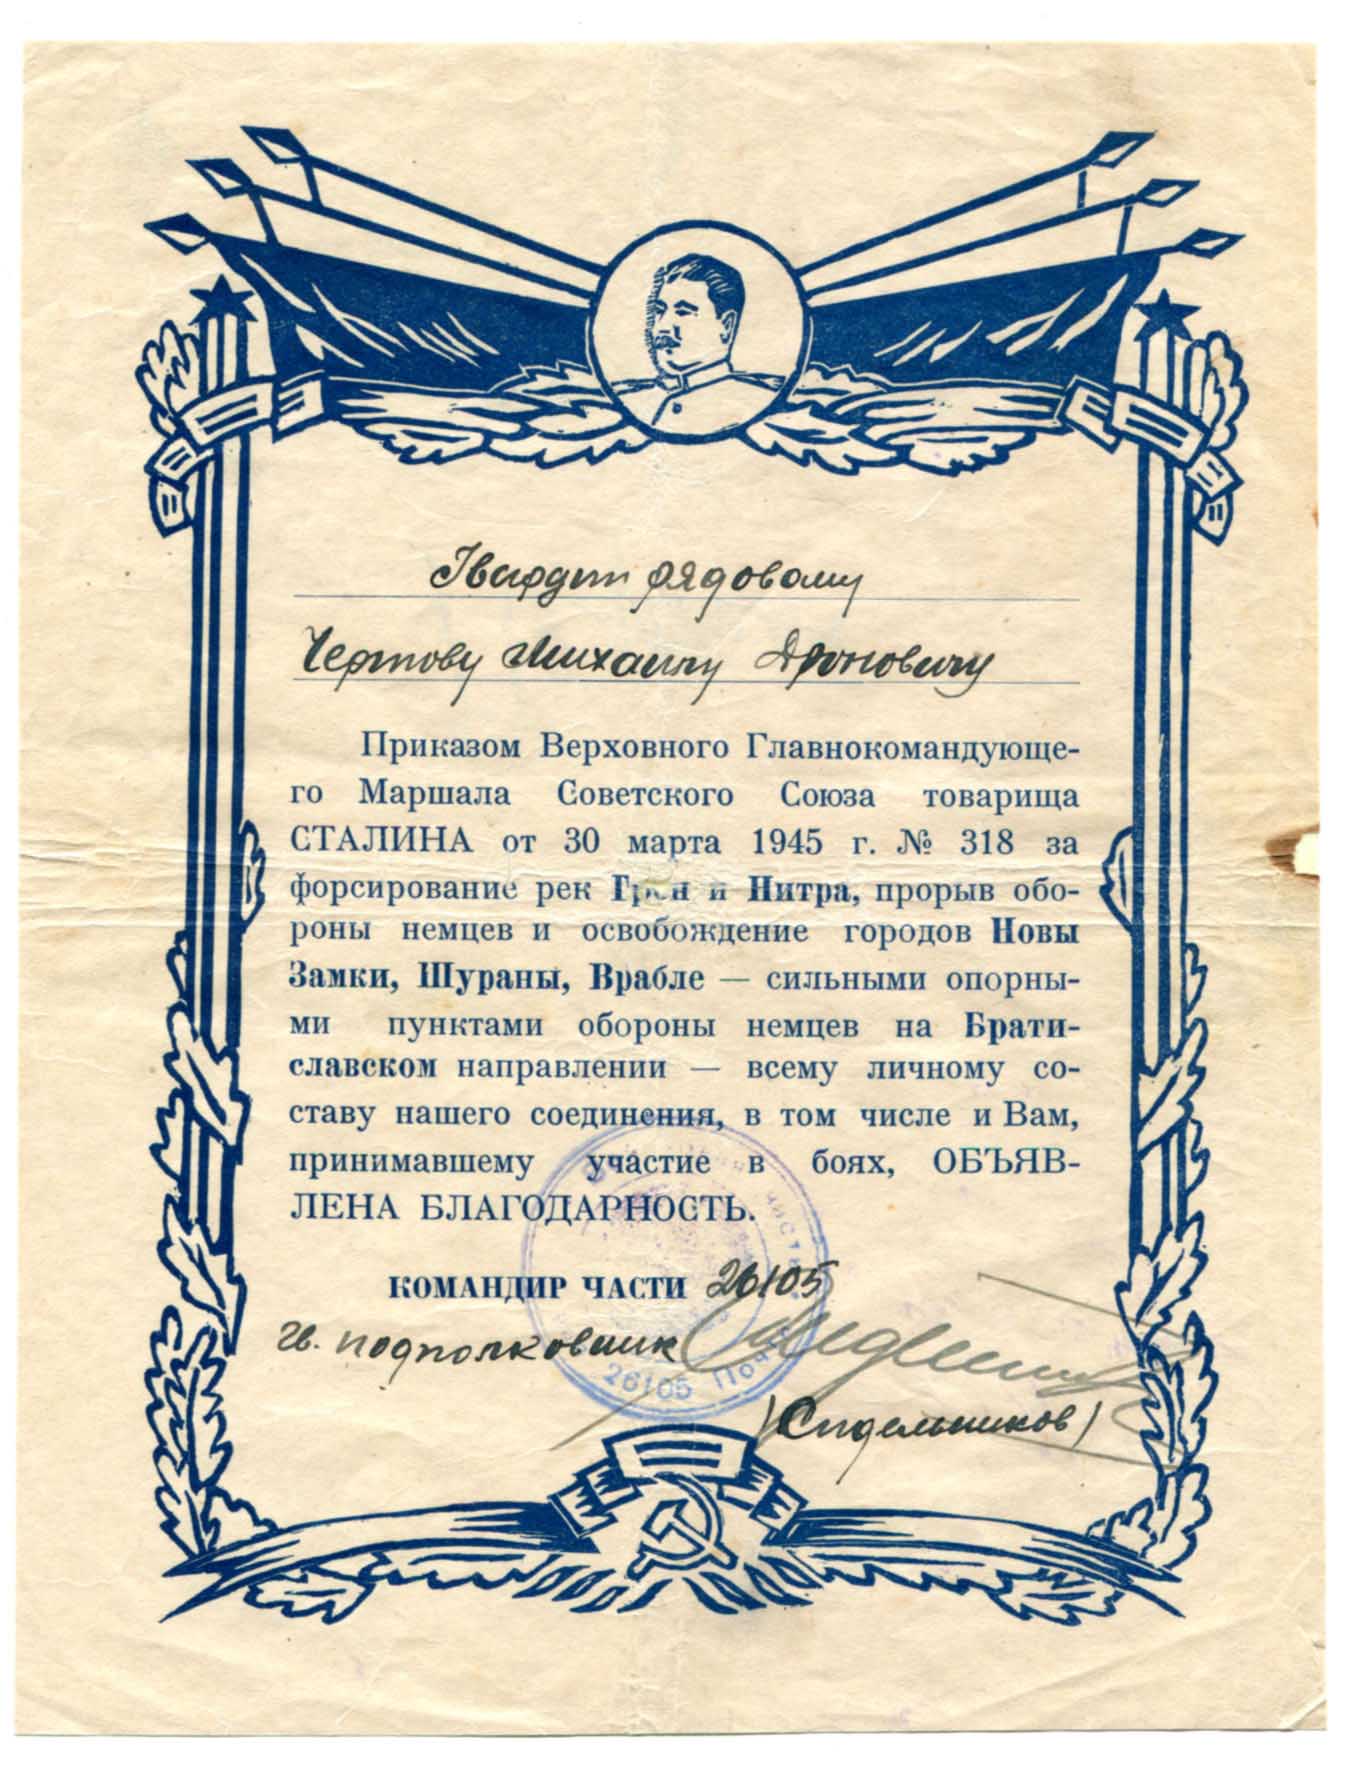 Гвардии рядовому
Чертову Михаилу Дроновичу
Приказом Верховного Главнокомандующе-
го Маршала Советского Союза товарища
СТАЛИНА от 30 марта 1945 г. № 318 за
форсирование рек Грон и Нитра, прорыв обо-
роны немцев и освобождение городов Новы
Замки, Шураны, Врабле — сильными опорны-
ми пунктами обороны немцев на Брати-
славском направлении — всему личному со-
ставу нашего соединения, в том числе и Вам,
принимавшему участие в боях, ОБЪЯВ-
ЛЕНА БЛАГОДАРНОСТЬ.
КОМАНДИР ЧАСТИ 26105
гв. подполковник
(Сидельников)
26105